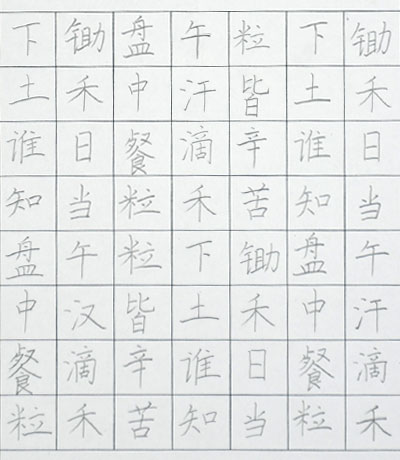 锄禾日当午汗滴禾
下土谁知盘中餐粒
粒皆辛苦锄禾日当
午汗滴禾下土谁知
盘中餐粒粒皆辛苦
锄禾日当午汉滴禾
下土谁知盘中餐粒